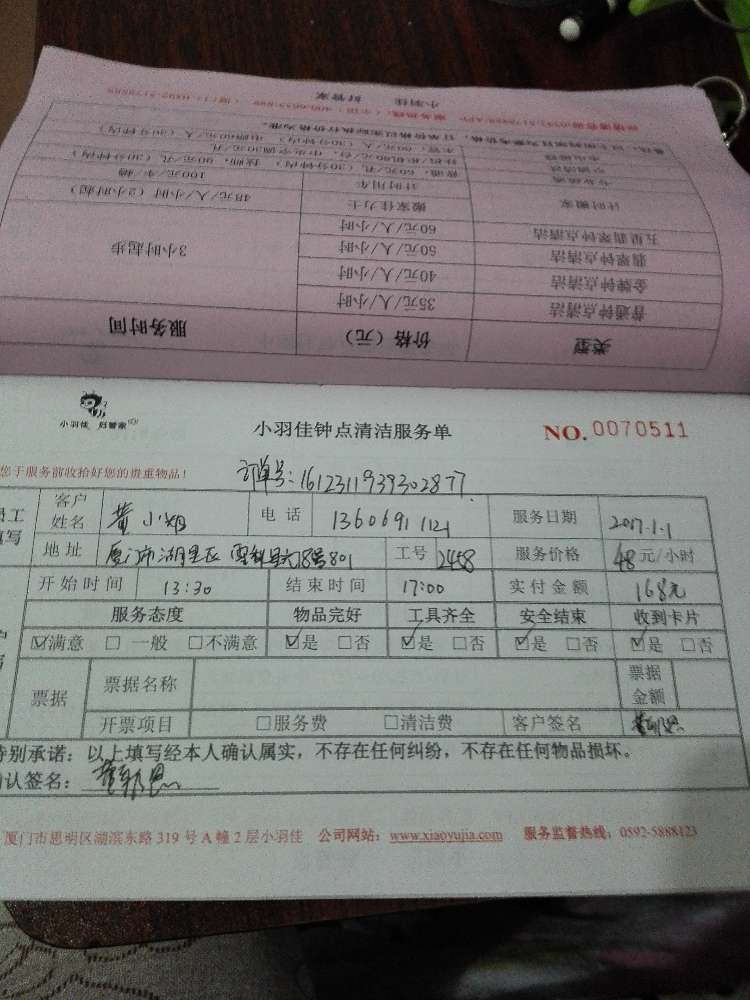 小羽佳 好管家
类型 价格（元） 服务时间
普通钟点清洁 35元/人/小时 3小时起步
金牌钟点清洁 40元/人/小时
翡翠钟点清洁 50元/人/小时
五星翡翠钟点清洁 60元/人/小时
计时搬家 搬家佳力士 48元/人/小时（2小时起）
计时用车 100元/车/趟
小羽佳 好管家
小羽佳钟点清洁服务单
NO. 0070511
您于服务前收拾好您的贵重物品！
订单号：1612311939302877
客户姓名 黄小姐 电话 13606911121 服务日期 2017.1.1
地址 厦门市湖里区 18号801 工号 2458 服务价格 48元/小时
开始时间 13:30 结束时间 17:00 实付金额 168元
服务态度 物品完好 工具齐全 安全结束 收到卡片
☑满意 □一般 □不满意 ☑是 □否 ☑是 □否 ☑是 □否 ☑是 □否
票据 票据名称 票据金额
开票项目 □服务费 □清洁费 客户签名
特别承诺：以上填写经本人确认属实，不存在任何纠纷，不存在任何物品损坏。
确认签名：
厦门市思明区湖滨东路 319 号 A 幢 2 层小羽佳 公司网站：www.xiaoyujia.com 服务监督热线：0592-5888123